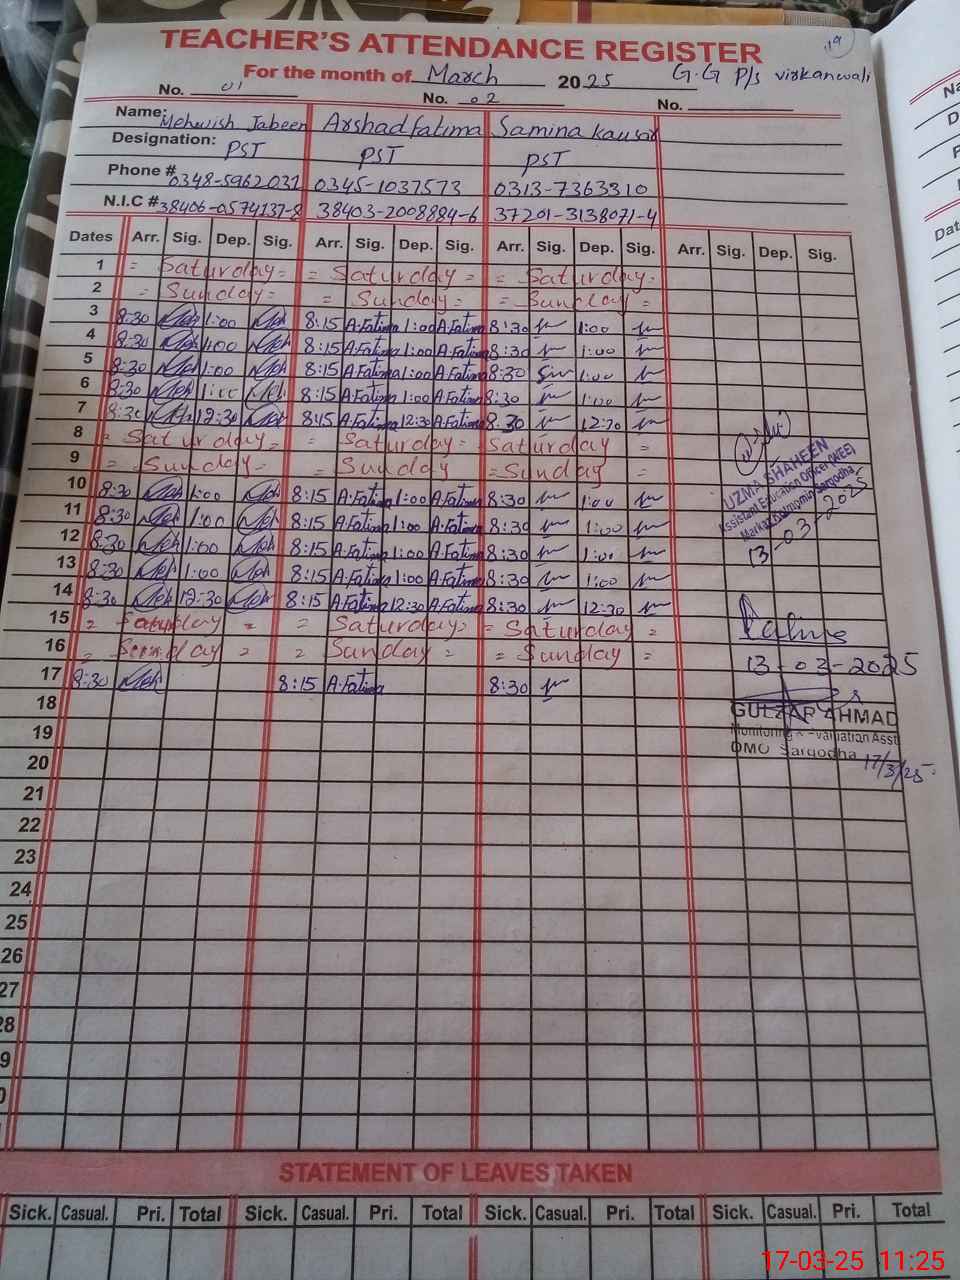 19
TEACHER'S ATTENDANCE REGISTER
For the month of March 2025 G.G P/s virkanwali
No. 01 No. 02 No.
Name: Mehwish Jabeen Arshad fatima Samina kausar
Designation: PST PST PST
Phone # 0348-5962031 0345-1037573 0313-7363310
N.I.C # 38406-0574137-8 38403-2008884-6 37201-3138071-4
Dates Arr. Sig. Dep. Sig. Arr. Sig. Dep. Sig. Arr. Sig. Dep. Sig. Arr. Sig. Dep. Sig.
1 = Saturday = = Saturday = = Saturday =
2 = Sunday = = Sunday = = Sunday =
3 8:30 Meh 1:00 Meh 8:15 A.Fatima 1:00 A.Fatima 8:30 1:00
4 8:30 Meh 1:00 Meh 8:15 A.Fatima 1:00 A.Fatima 8:30 1:00
5 8:30 Meh 1:00 Meh 8:15 A.Fatima 1:00 A.Fatima 8:30 1:00
6 8:30 Meh 1:00 Meh 8:15 A.Fatima 1:00 A.Fatima 8:30 1:00
7 8:30 Meh 12:30 Meh 8:15 A.Fatima 12:30 A.Fatima 8:30 12:30
8 = Saturday = = Saturday = = Saturday =
9 = Sunday = = Sunday = Sunday =
10 8:30 Meh 1:00 Meh 8:15 A.Fatima 1:00 A.Fatima 8:30 1:00
11 8:30 Meh 1:00 Meh 8:15 A.Fatima 1:00 A.Fatima 8:30 1:00
12 8:30 Meh 1:00 Meh 8:15 A.Fatima 1:00 A.Fatima 8:30 1:00
13 8:30 Meh 1:00 Meh 8:15 A.Fatima 1:00 A.Fatima 8:30 1:00
14 8:30 Meh 12:30 Meh 8:15 A.Fatima 12:30 A.Fatima 8:30 12:30
15 = Saturday = = Saturday = = Saturday =
16 = Sunday = = Sunday = = Sunday =
17 8:30 Meh 8:15 A.Fatima 8:30
18
19
20
21
22
23
24
25
26
27
28
9
0
UZMA SHAHEEN
Assistant Education Officer (WEE)
Markaz Sargodha
13-03-2025
13-03-2025
GULZAR AHMAD
Monitoring & Evaluation Asst
DMO Sargodha 17/3/25
STATEMENT OF LEAVES TAKEN
Sick. Casual. Pri. Total Sick. Casual. Pri. Total Sick. Casual. Pri. Total Sick. Casual. Pri. Total
17-03-25 11:25